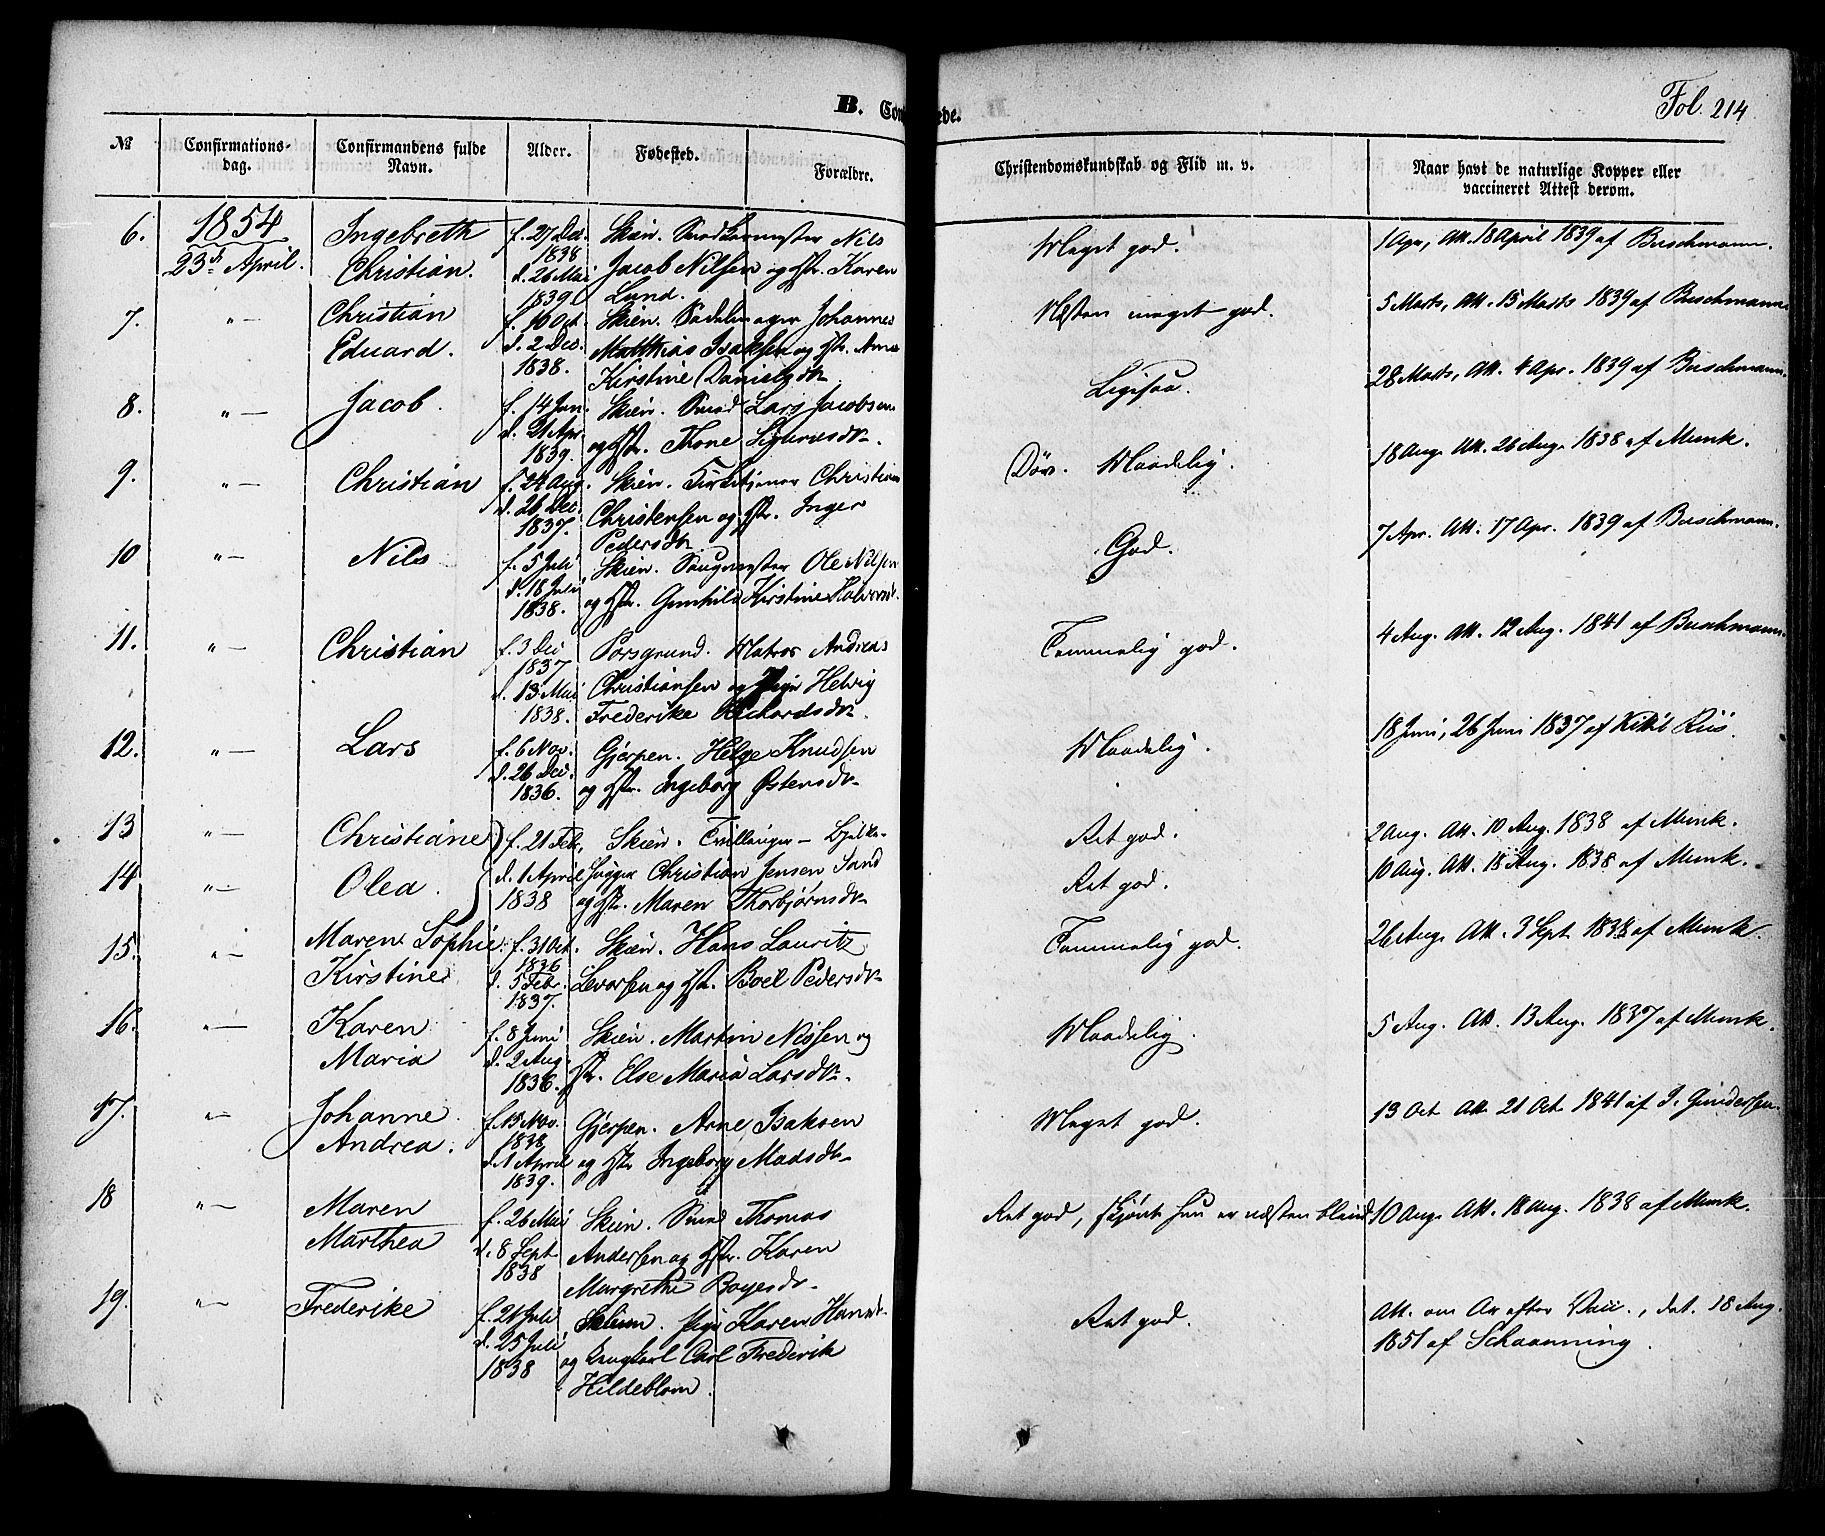 B. Con
ede.
Fol. 214
№
Confirmations-
dag.
Confirmandens fulde
Navn.
Alder.
Fødested.
Forældre.
Christendomskundskab og Flid m. v.
Naar havt de naturlige Kopper eller
vaccineret Attest derom.
6.
1854
23d April.
Ingebreth
Christian.
f. 27 Dec.
1838
d. 26 Mai
1839
Skien. Snedkermester Nils
Jacob Nilsen og Hstr. Karen
Lund.
Meget god.
1 Apr, Att. 13 April 1839 af Buschmann.
7.
"—
Christian
Eduard.
f. 10 Oct.
d. 2 Dec.
1838.
Skien. Sadelmager Johannes
Matthias Isaksen og Hstr. Anne
Kirstine Danielsdtr
Næsten meget god.
5 Marts, Att. 15 Marts 1839 af Buschmann.
8.
"—
Jacob.
f. 14 Jan.
d. 21 Apr.
1839.
Skien. Smed Lars Jacobsen
og Hstr. Thone
Ligesaa.
28 Marts, Att. 4 Apr. 1839 af Buschmann.
9.
"—
Christian
f. 24 Aug.
d. 26 Dec.
1837.
Skien. Christian
Christensen og Hstr. Inger
Pedersdtr.
Døv. Maadelig.
18 Aug. Att. 26 Aug. 1838 af Munk.
10
"—
Nils
f. 5 Juli
d. 18 Juli
1838.
Skien. Ole Nilsen
og Hstr. Gunhild Kirstine Halvorsdtr.
God.
7 Apr. Att. 17 Apr. 1839 af Buschmann.
11.
"—
Christian
f. 3 Dec
1837
d. 13 Mai
1838.
Porsgrund. Matros Andreas
Christiansen og Pige Helvig
Frederike Richardsdtr.
Temmelig god.
4 Aug. Att. 12 Aug. 1841 af Buschmann.
12.
"—
Lars
f. 6 Nov.
d. 26 Dec.
1836.
Gjerpen. Helge Knudsen
og Hstr. Ingeborg Østensdtr
Maadelig.
18 Juni, 26 Juni 1837 af Kittil Riis.
13
"—
Christiane
f. 21 Febr.
Skien. Tvillinger – Bjelke-
Ret god.
2 Aug. Att. 10 Aug. 1838 af Munk.
14
"—
Olea.
d. 1 April
1838
hugger Christian Jensen Sand
og Hstr. Maren Thorbjørnsdtr
Ret god.
10 Aug. Att. 18 Aug. 1838 af Munk.
15.
"—
Maren Sophie
Kirstine
f. 31 Oct.
1836
d. 5 Febr.
1837.
Skien. Hans Lauritz
Levorsen og Hstr. Boel Pedersdtr
Temmelig god.
26 Aug. Att. 3 Sept 1838 af Munk.
16.
"—
Karen
Maria
f. 8 Juni
d. 2 Aug.
1836.
Skien. Martin Nilsen og
Hstr. Else Maria Larsdtr.
Maadelig.
5 Aug. Att. 13 Aug. 1837 af Munk.
17.
"—
Johanne
Andrea.
f. 15 Nov.
1838
d. 1 April
1839.
Gjerpen. Arne Isaksen
og Hstr Ingeborg Madsdtr
Meget god.
13 Oct Att. 21 Oct. 1841 af J. Gundersen.
18
"—
Maren
Marthea
f. 26 Mai
d. 8 Sept
1838
Skien. Smed Thomas
Andersen og Hstr. Karen
Margrethe Boyesdtr
Ret god, skjønt hun er næsten blind.
10 Aug. Att. 18 Aug. 1838 af Munk.
19.
"—
Frederike
f. 21 Juli
d. 25 Juli
1838
Skien. Pige Karen Hansdtr.
og Ungkarl Carl Frederik
Hildeblom.
Ret god.
Att. om Ar efter Vacc., dat. 18 Aug.
1851 af Schaanning.